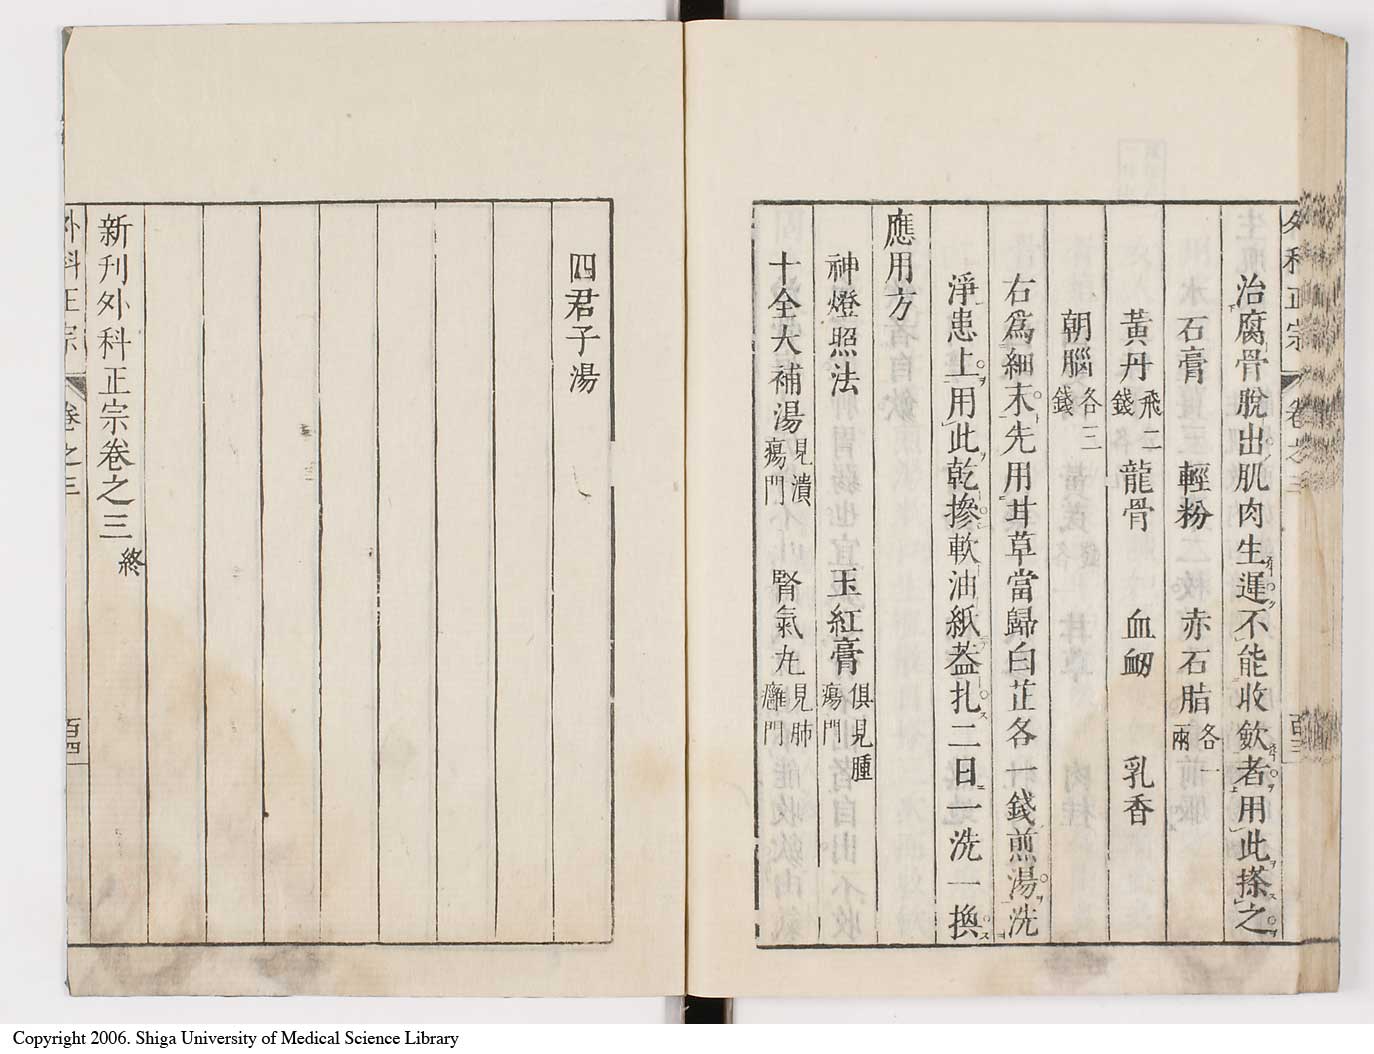 外科正宗 卷之三 百三
治腐骨脫出肌肉生遲不能收斂者用此搽之
石膏 輕粉 赤石脂各一兩
黃丹飛二錢 龍骨 血衂 乳香
朝腦各三錢
右爲細末先用甘草當歸白芷各一錢煎湯洗
淨患上用此乾摻軟油紙蓋扎二日一洗一換
應用方
神燈照法 玉紅膏俱見腫瘍門
十全大補湯見潰瘍門 腎氣丸見肺癰門
四君子湯
新刊外科正宗卷之三終
外科正宗 卷之三 百四
Copyright 2006. Shiga University of Medical Science Library